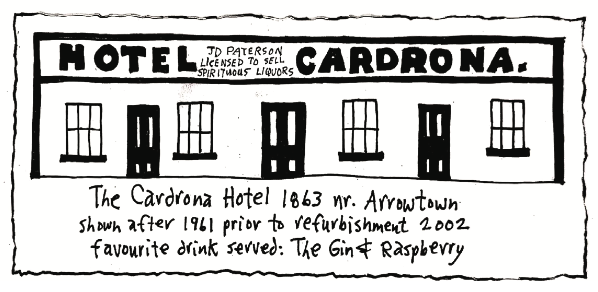 HOTEL JD PATERSON CARDRONA.
LICENSED TO SELL
SPIRITUOUS LIQUORS
The Cardrona Hotel 1863 nr. Arrowtown
shown after 1961 prior to refurbishment 2002
favourite drink served: The Gin & Raspberry